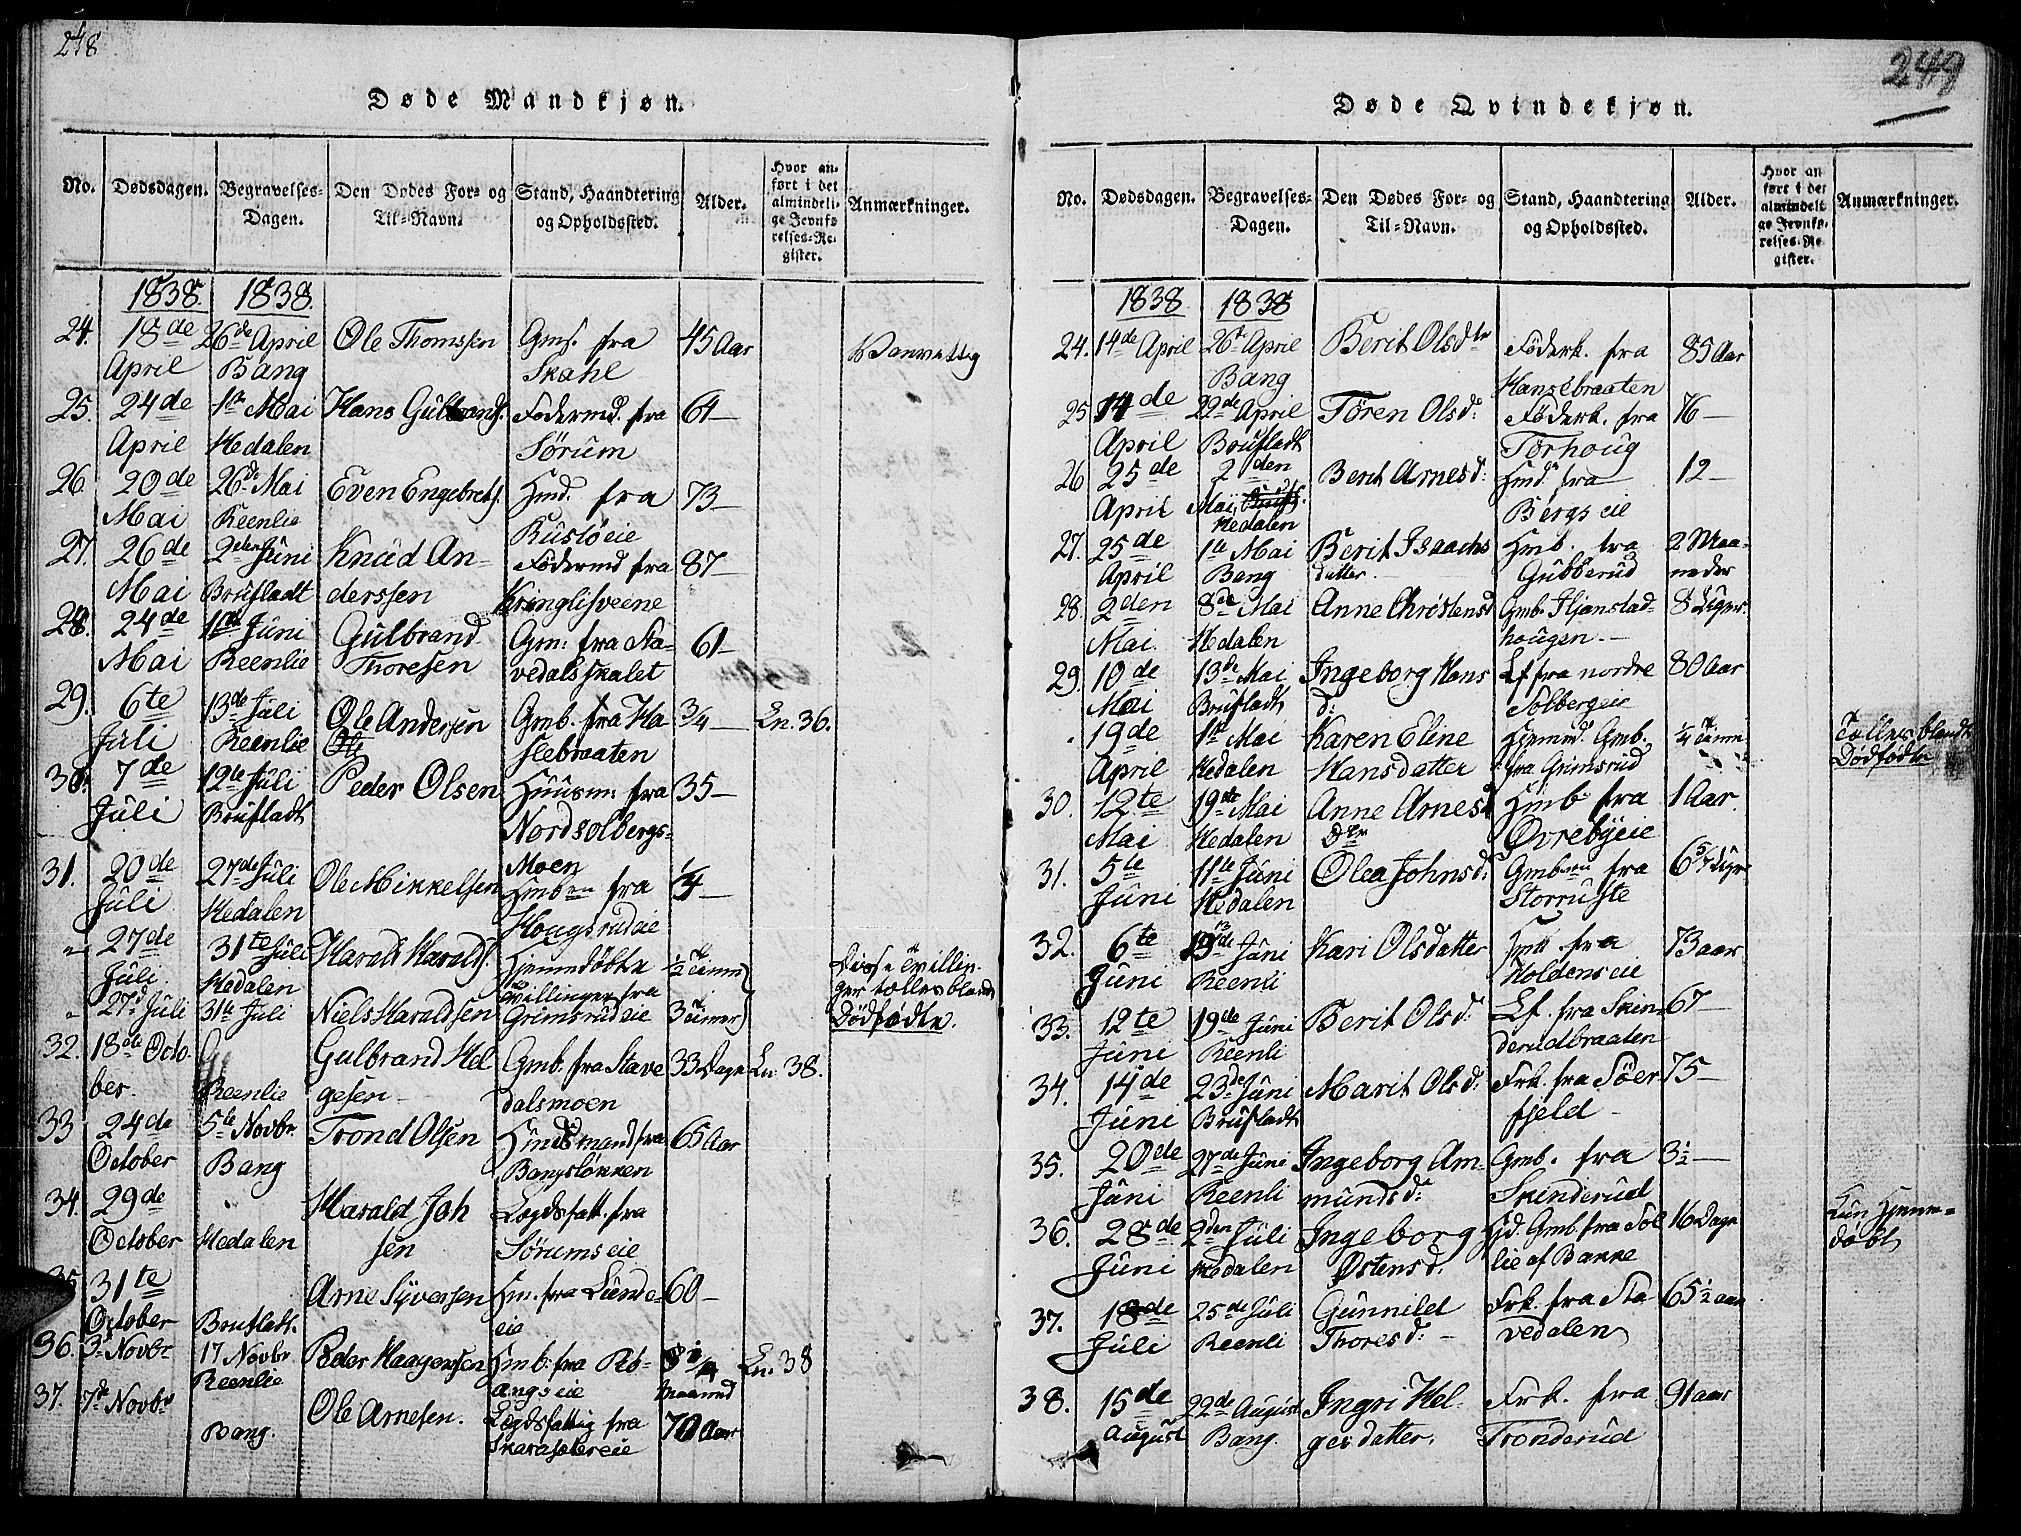 248
Døde Mandkjøn.
No. Dødsdagen. Begravelses-Dagen. Den Dødes For- og Til-Navn. Stand, Haandtering og Opholdssted. Alder. Hvor anført i det almindelige Jevnførelses-Register. Anmærkninger.
1838. 1838.
24. 18de April 26de April Bang Ole Thomssen Gms. fra Skahl 45 Aar Vanvittig
25. 24de April 1ste Mai Hedalen Hans Gulbrands. Fødermd. fra Sørum 61—
26. 20de Mai 26de Mai Reenlie Even Engebrets. Hmd. fra Rusløeie 73—
27. 26de Mai 2den Juni Brufladt Knud Anderssen Födermd fra Kringlisveene 87—
28. 24de Mai 1ste Juni Reenlie Gulbrand Thoresen Gm: fra Stavedalsskalet 61—
29. 6te Juli 13de Juli Reenlie Ole Andersen Gmb. fra Haslebraaten 3/4— Ln. 36.
30. 7de Juli 12te Juli Brufladt Peder Olsen Huusm: fra Nordsolbergs-Moen 35—
31. 20de Juli 27de Juli Hedalen Ole Mikkelsen Hmben fra Hougsrudeie 1/4—
" 27de Juli 31te Juli Hedalen Harald Haralds. Hjemmdøbte Tvillinger fra Grimsrudeie 1/2 Time Disse Tvillinger tælles blandt Dødfødte.
" 27d Juli 31te Juli Niels Haraldsen 3 Timer
32. 18de October Reenlie Gulbrand Helgesen Gmb. fra Stavedalsmoen 33 Dage Ln. 38.
33 24de October 5te Novbr Bang Trond Olsen Huusmand fra Bangsløkken 65 Aar
34. 29de October Hedalen Harald Johsen Legdsfatt. fra Sørumseie
35 31te October Bruflatt. Arne Syversen Hm. fra Lundeeie 60—
36. 3. Novbr 17 Novbr Reenlie Peder Haagensen Hmb: fra Røangseie Maaned Ln. 38
37. 7d Novbr Bang. Ole Arnesen. Legdsfattig fra Skarasætereie 70 Aar
249
Døde Qvindekjøn.
No. Dødsdagen. Begravelses-Dagen. Den Dødes For- og Til-Navn. Stand, Haandtering og Opholdssted. Alder. Hvor anført i det almindelige Jevnførelses-Register. Anmærkninger.
1838 1838
24. 14de April 26de April Bang Berit Olsdtr Föderk. fra Hansebraaten 85 Aar
25 14de April 22de April Brufladt Tøren Olsd: Føderk. fra Torhoug 76—
26 25de April 2den Mai, Hedalen Berit Arnesd: Hmd: fra Bergseie 12—
27. 25de April 1te Mai Bang Berit Isaachsdatter Hmb. fra Gubberud 2 Maaneder
28. 2den Mai. 8de Mai Hedalen Anne Christensd Gmb. Hjanstadhougen.— 8 Uger
29. 10de Mai 13de Mai Brufladt Ingeborg Hansd: Lf fra nordre Solbergeie 80 Aar
" 19de April 1te Mai Hedalen Karen Eline Hansdatter Hjemmd. Gmb. fra Grimsrud 1/4 Time Tælles blandt Dødfødte
30. 12te Mai 19de Mai Hedalen Anne Arnesd Hmb: fra Øvrebyeie 1 Aar
31. 5te Juni 11te Juni Hedalen Olea Johnsd: Gmben fra Storruste 6 5/7 Uger
32. 6te Juni 13de Juni Reenli Kari Olsdatter fra Holdenseie 73 aar
33. 12te Juni 19de Juni Reenli Berit Olsd: Lf. fra Skinderudbraaten 67—
34. 14de Juni 23de Juni Brufladt Marit Olsd: Frk. fra Söerfjeld 75—
35. 20de Juni 27de Juni Reenli Ingeborg Amundsd: Gmb. fra Skinderud 3½—
36. 28de Juni 2den Juli Hedalen Ingeborg Østensd: Hjd. Gmb. fra Sollie af Bakke 16 Dage Kun Hjemmedøbt
37. 18de Juli 25de Juli Reenli Gunnild Thoresd: Frk. fra Stavedalen 65½ aar
38. 15de August 22de August Bang. Ingri Helgesdatter. Frk. fra Tronderud 91 aar